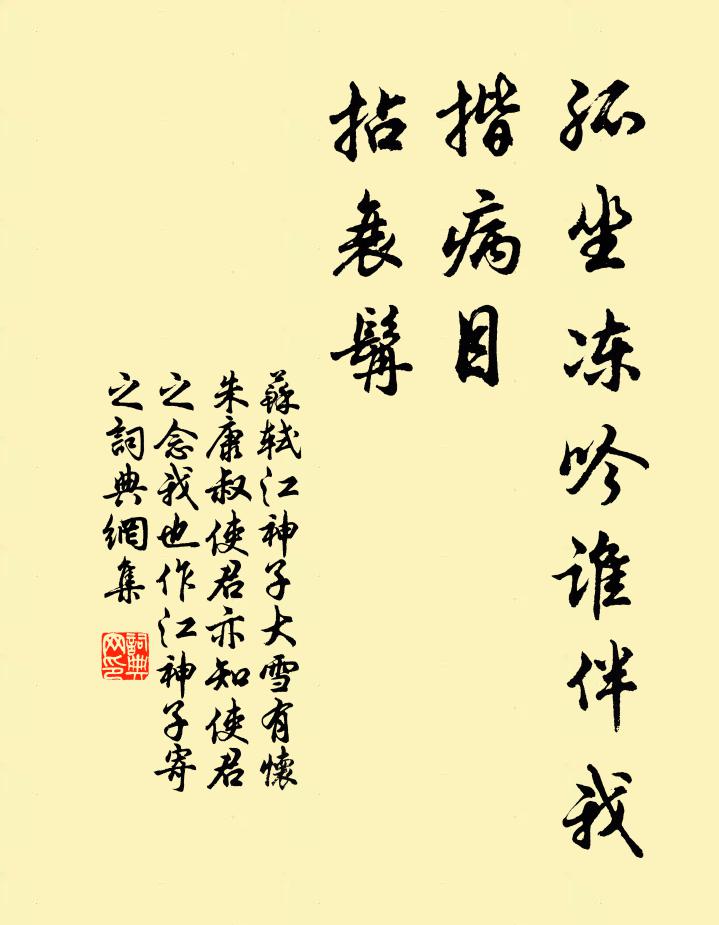 孤坐冻吟谁伴我
揩病目
拈衰髯
蘇軾江神子大雪有懷
朱康叔使君亦知使君
之念我也作江神子寄
之詞典網集
詞典网印